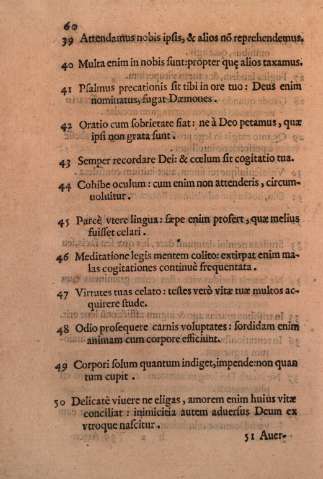 60
39 Attendamus nobis ipsis, & alios nõ reprehendemus.
40 Multa enim in nobis sunt: propter quę alios taxamus.
41 Psalmus precationis sit tibi in ore tuo: Deus enim
nominatus, fugat Dæmones.
42 Oratio cum sobrietate fiat: ne à Deo petamus, quæ
ipsi non grata sunt.
43 Semper recordare Dei: & cœlum sit cogitatio tua.
44 Cohibe oculum: cum enim non attenderis, circum-
uoluitur.
45 Parcè vtere lingua: sæpe enim profert, quæ melius
fuisset celari.
46 Meditatione legis mentem colito: extirpat enim ma-
las cogitationes continuè frequentata.
47 Virtutes tuas celato: testes verò vitæ tuæ multos ac-
quirere stude.
48 Odio prosequere carnis voluptates: sordidam enim
animam cum corpore efficiunt.
49 Corpori solum quantum indiget, impende: non quan
tum cupit.
50 Delicatè viuere ne eligas, amorem enim huius vitæ
conciliat: inimicitia autem aduersus Deum ex
vtroque nascitur.
51 Auer-